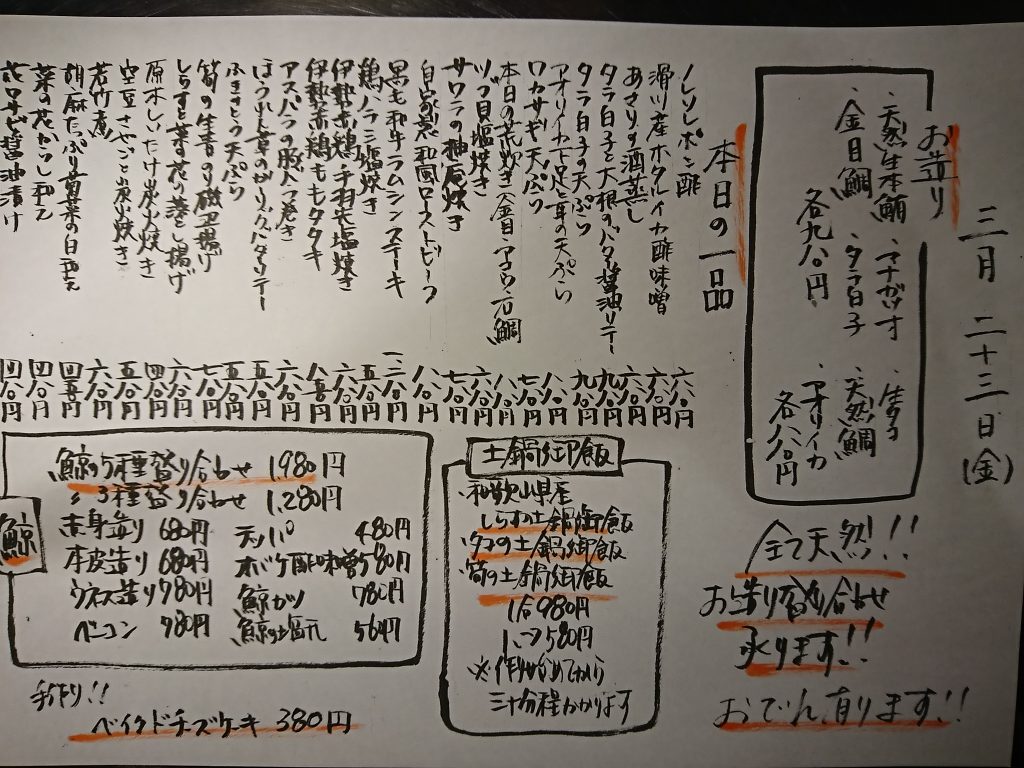 三月 二十三日(金)
お造り
・天然生本鮪 ・マナガツオ ・生タコ
・金目鯛 ・タラ白子 ・天然鯛
・アオリイカ
各九八〇円
各八八〇円
全て天然!!
お造り盛り合わせ
承ります!!
おでん有ります!!
本日の一品
ノレソレポン酢 六八〇円
滑川産ホタルイカ酢味噌 六八〇円
あさりの酒蒸し 六八〇円
タラ白子と大根のバター醤油ソテー 九八〇円
タラ白子の天ぷら 九八〇円
アオリイカ下足と耳の天ぷら 八八〇円
ワカサギ天ぷら 七八〇円
本日の荒炊き 金目・アコウ・石鯛 八八〇円
ツブ貝塩焼き 六八〇円
サワラの柚庵焼き 七八〇円
自家製和風ローストビーフ 八八〇円
黒毛和牛ラムシンステーキ
鶏ハラミ塩焼き 五八〇円
伊勢赤鶏手羽先塩焼き 六八〇円
伊勢赤鶏ももタタキ 八五〇円
アスパラの豚バラ巻き 六八〇円
ほうれん草のガーリックバターソテー 五八〇円
ふきのとう天ぷら 五八〇円
筍の生青のり磯辺揚げ 七八〇円
しらすと菜の花の落とし揚げ 六八〇円
原木しいたけ炭火焼き 四八〇円
空豆さやごと炭火焼き 五八〇円
若竹煮 六八〇円
胡麻たっぷり春菊の白和え 四五〇円
菜の花からし和え 四八〇円
花ワサビ醤油漬け 四八〇円
土鍋御飯
和歌山県産
しらすの土鍋御飯
タコの土鍋御飯
筍の土鍋御飯
1合980円
1/2合580円
※作り始めてから
三十分程かかります
鯨
鯨の5種盛り合わせ 1,980円
〃 3種盛り合わせ 1,280円
赤身造り 680円 テッパ 480円
本皮造り 680円 オバケ酢味噌 580円
ウネス造り 980円 鯨ガツ 780円
ベーコン 980円 鯨の塩元 564円
手作り!!
ベイクドチーズケーキ 380円